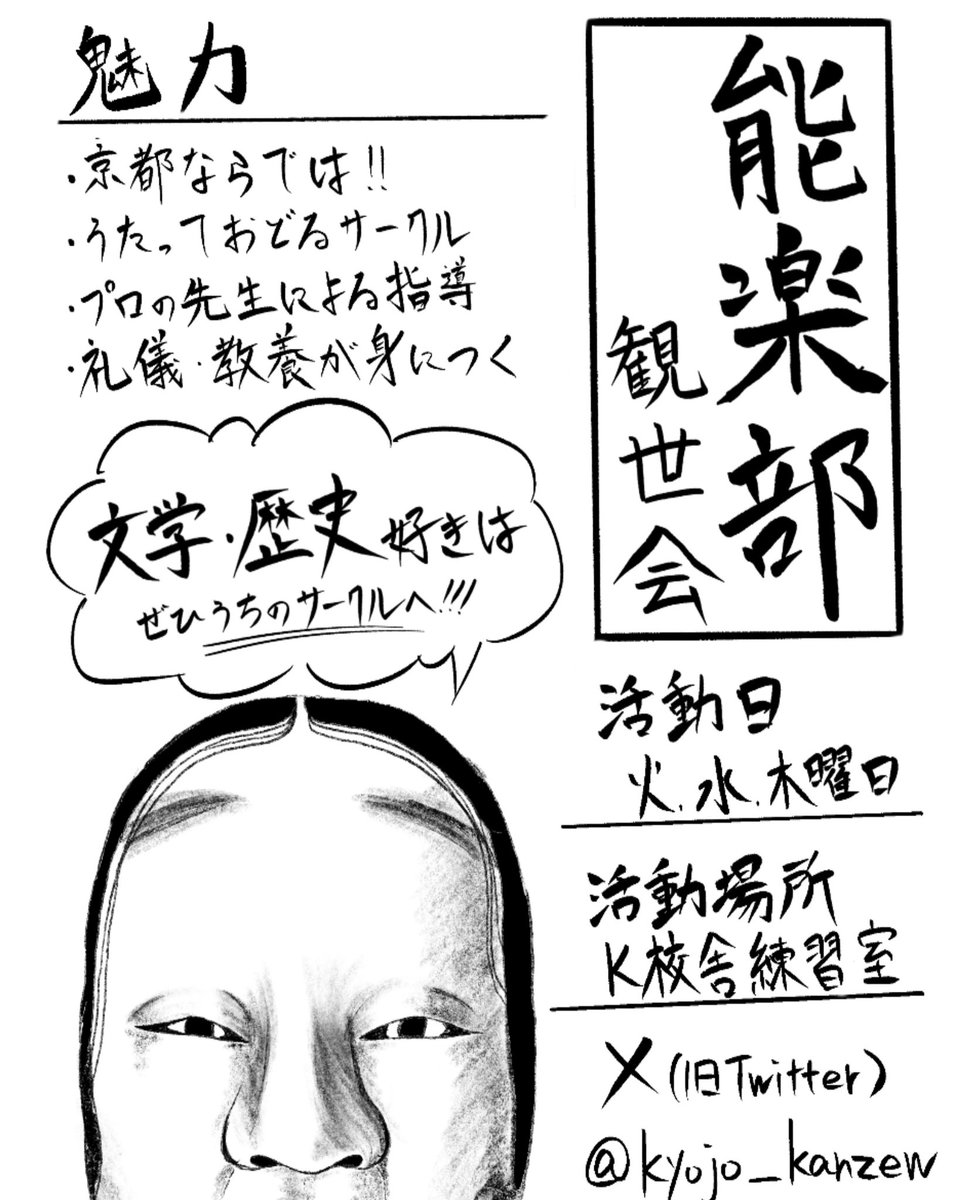 能楽部
観世会
魅力
・京都ならでは!!
・うたっておどるサークル
・プロの先生による指導
・礼儀・教養が身につく
文学・歴史好きは
ぜひうちのサークルへ!!!
活動日
火、水、木曜日
活動場所
K校舎練習室
X(旧Twitter)
@kyojo_kanzew